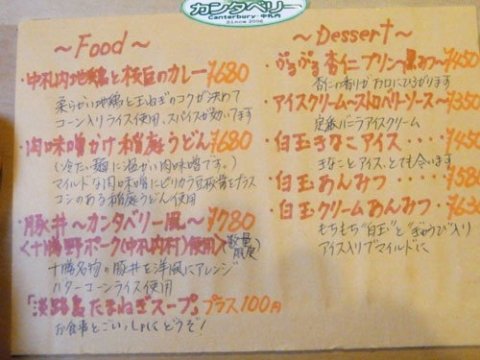 カンタベリー
Canterbury 中札内
Since 2006
〜Food〜
・中札内地鶏と枝豆のカレー¥680
柔らかい地鶏と玉ねぎのコクが決めて
コーン入りライス使用、スパイスが効いてます
・肉味噌かけ稲庭うどん¥680
(冷たい麺に温かい肉味噌です。)
マイルドな肉味噌にピリカラ豆板醤をプラス
コシのある稲庭うどん使用
・豚丼〜カンタベリー風〜¥780
〈十勝野ポーク(中札内村)使用〉数量限定
十勝名物の豚丼を洋風にアレンジ
バターコーンライス使用
「淡路島たまねぎスープ」プラス100円
お食事とごいっしょにどうぞ!
〜Dessert〜
・ぷるぷる杏仁プリン〜黒みつ〜¥450
杏仁の香りがお口にひろがります
・アイスクリーム〜ストロベリーソース〜¥350
定番バニラアイスクリーム
・白玉きなこアイス・・・・¥450
きなことアイス、とても合います
・白玉あんみつ・・・・・¥580
・白玉クリームあんみつ・¥630
もちもち"白玉"と"ぎゅうひ"入り
アイス入りでマイルドに